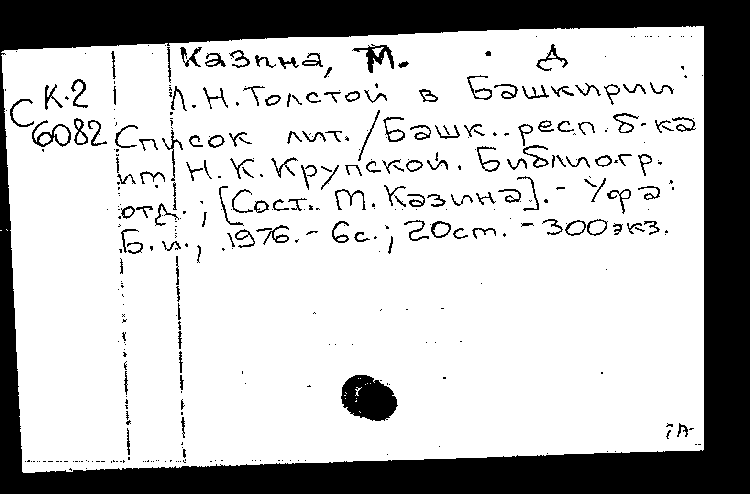 Казина, М. Д
К-2
С 6082
Л.Н.Толстой в Башкирии:
Список лит. / Башк. респ. б-ка
им. Н.К.Крупской. Библиогр.
отд.; [Сост. М. Казина]. - Уфа:
Б.и., 1976. - 6с.; 20см. - 300экз.